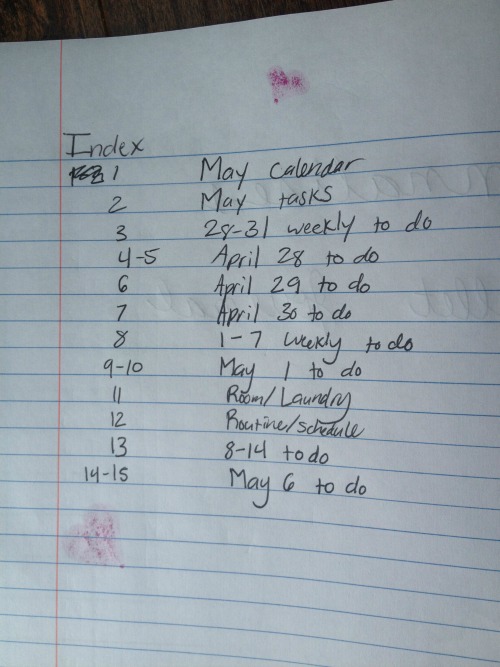 Index
1 May calendar
2 May tasks
3 28-31 weekly to do
4-5 April 28 to do
6 April 29 to do
7 April 30 to do
8 1-7 weekly to do
9-10 May 1 to do
11 Room/Laundry
12 Routine/schedule
13 8-14 to do
14-15 May 6 to do